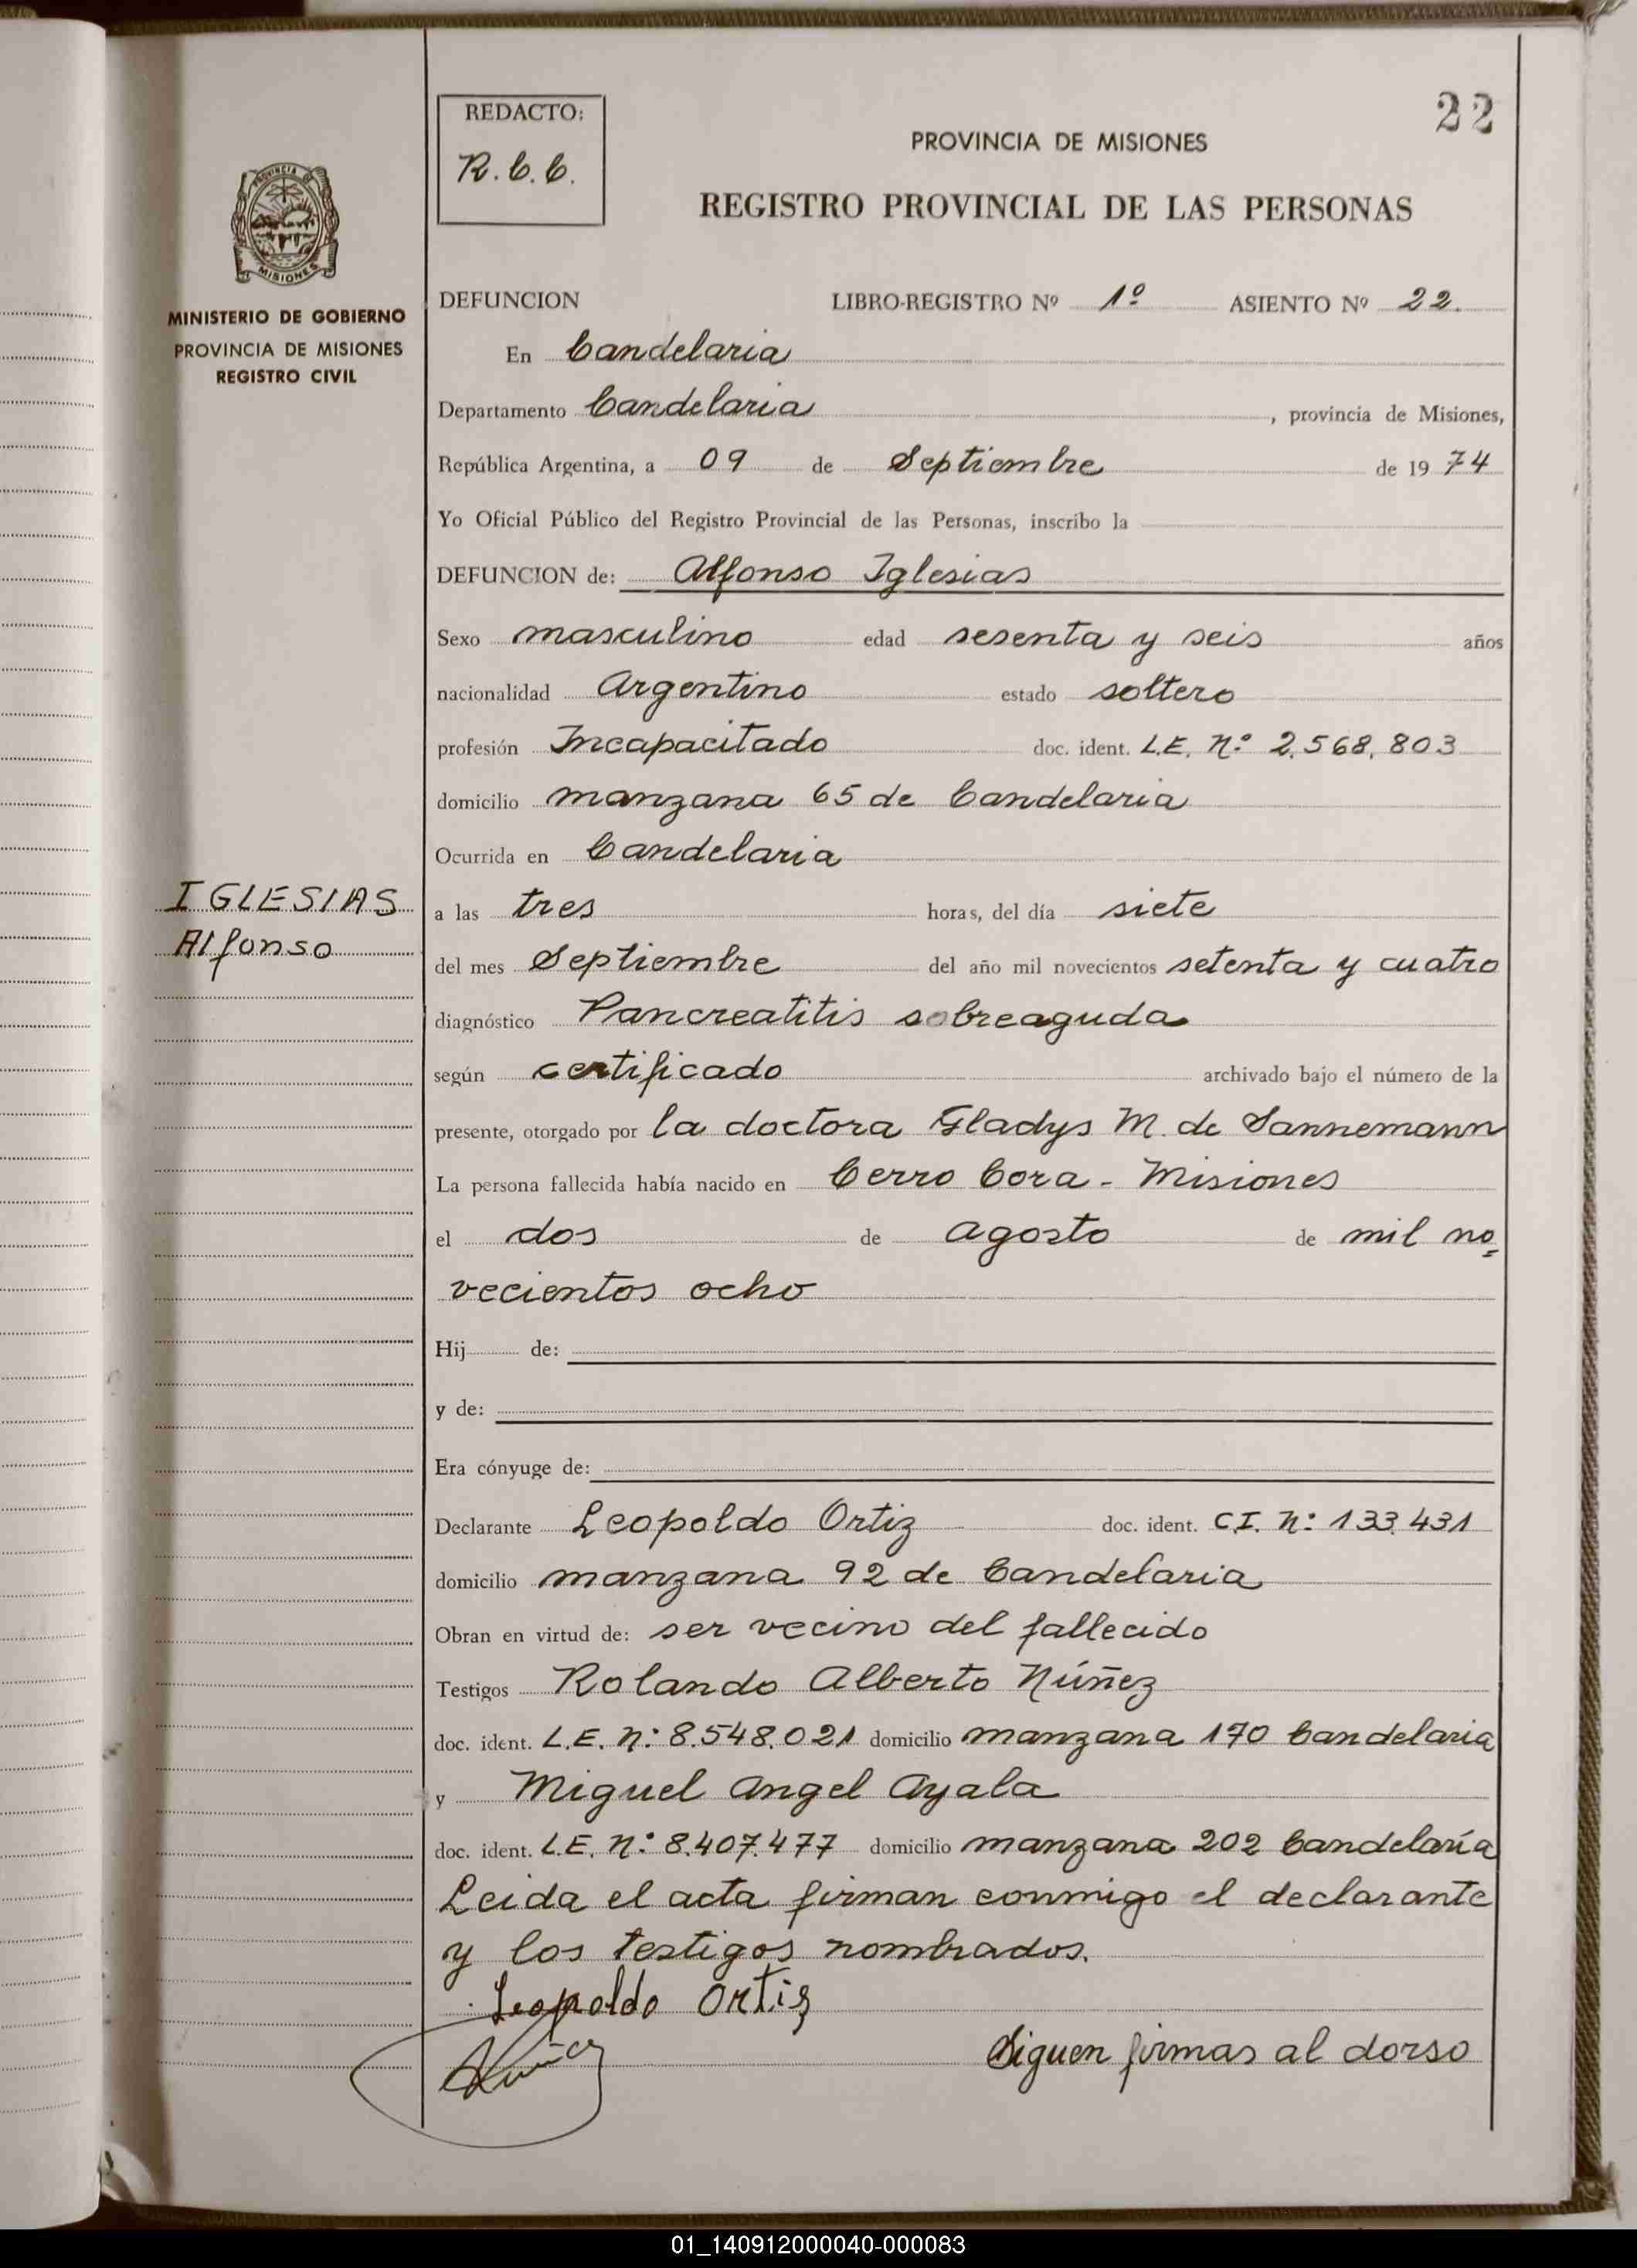 22
REDACTO:
R.C.C.
PROVINCIA DE MISIONES
REGISTRO PROVINCIAL DE LAS PERSONAS
PROVINCIA DE
MISIONES
MINISTERIO DE GOBIERNO
PROVINCIA DE MISIONES
REGISTRO CIVIL
DEFUNCION LIBRO-REGISTRO Nº 1º ASIENTO Nº 22.
En Candelaria
Departamento Candelaria, provincia de Misiones,
República Argentina, a 09 de Septiembre de 19 74
Yo Oficial Público del Registro Provincial de las Personas, inscribo la
DEFUNCION de: Alfonso Iglesias
Sexo masculino edad sesenta y seis años
nacionalidad Argentino estado soltero
profesión Incapacitado doc. ident. L.E. Nº 2.568.803
domicilio manzana 65 de Candelaria
Ocurrida en Candelaria
IGLESIAS
Alfonso
a las tres horas, del día siete
del mes Septiembre del año mil novecientos setenta y cuatro
diagnóstico Pancreatitis sobreaguda
según certificado archivado bajo el número de la
presente, otorgado por la doctora Gladys M. de Sannemann
La persona fallecida había nacido en Cerro Cora - Misiones
el dos de agosto de mil no=
vecientos ocho
Hij de:
y de:
Era cónyuge de:
Declarante Leopoldo Ortiz doc. ident. C.I. Nº 133.431
domicilio manzana 92 de Candelaria
Obran en virtud de: ser vecino del fallecido
Testigos Rolando Alberto Núñez
doc. ident. L.E. Nº 8.548.021 domicilio manzana 170 Candelaria
y Miguel Angel Ayala
doc. ident. L.E. Nº 8.407.477 domicilio manzana 202 Candelaría
Leida el acta firman conmigo el declarante
y los testigos nombrados.
Leopoldo Ortiz
Núñez
Siguen firmas al dorso
01_140912000040-000083